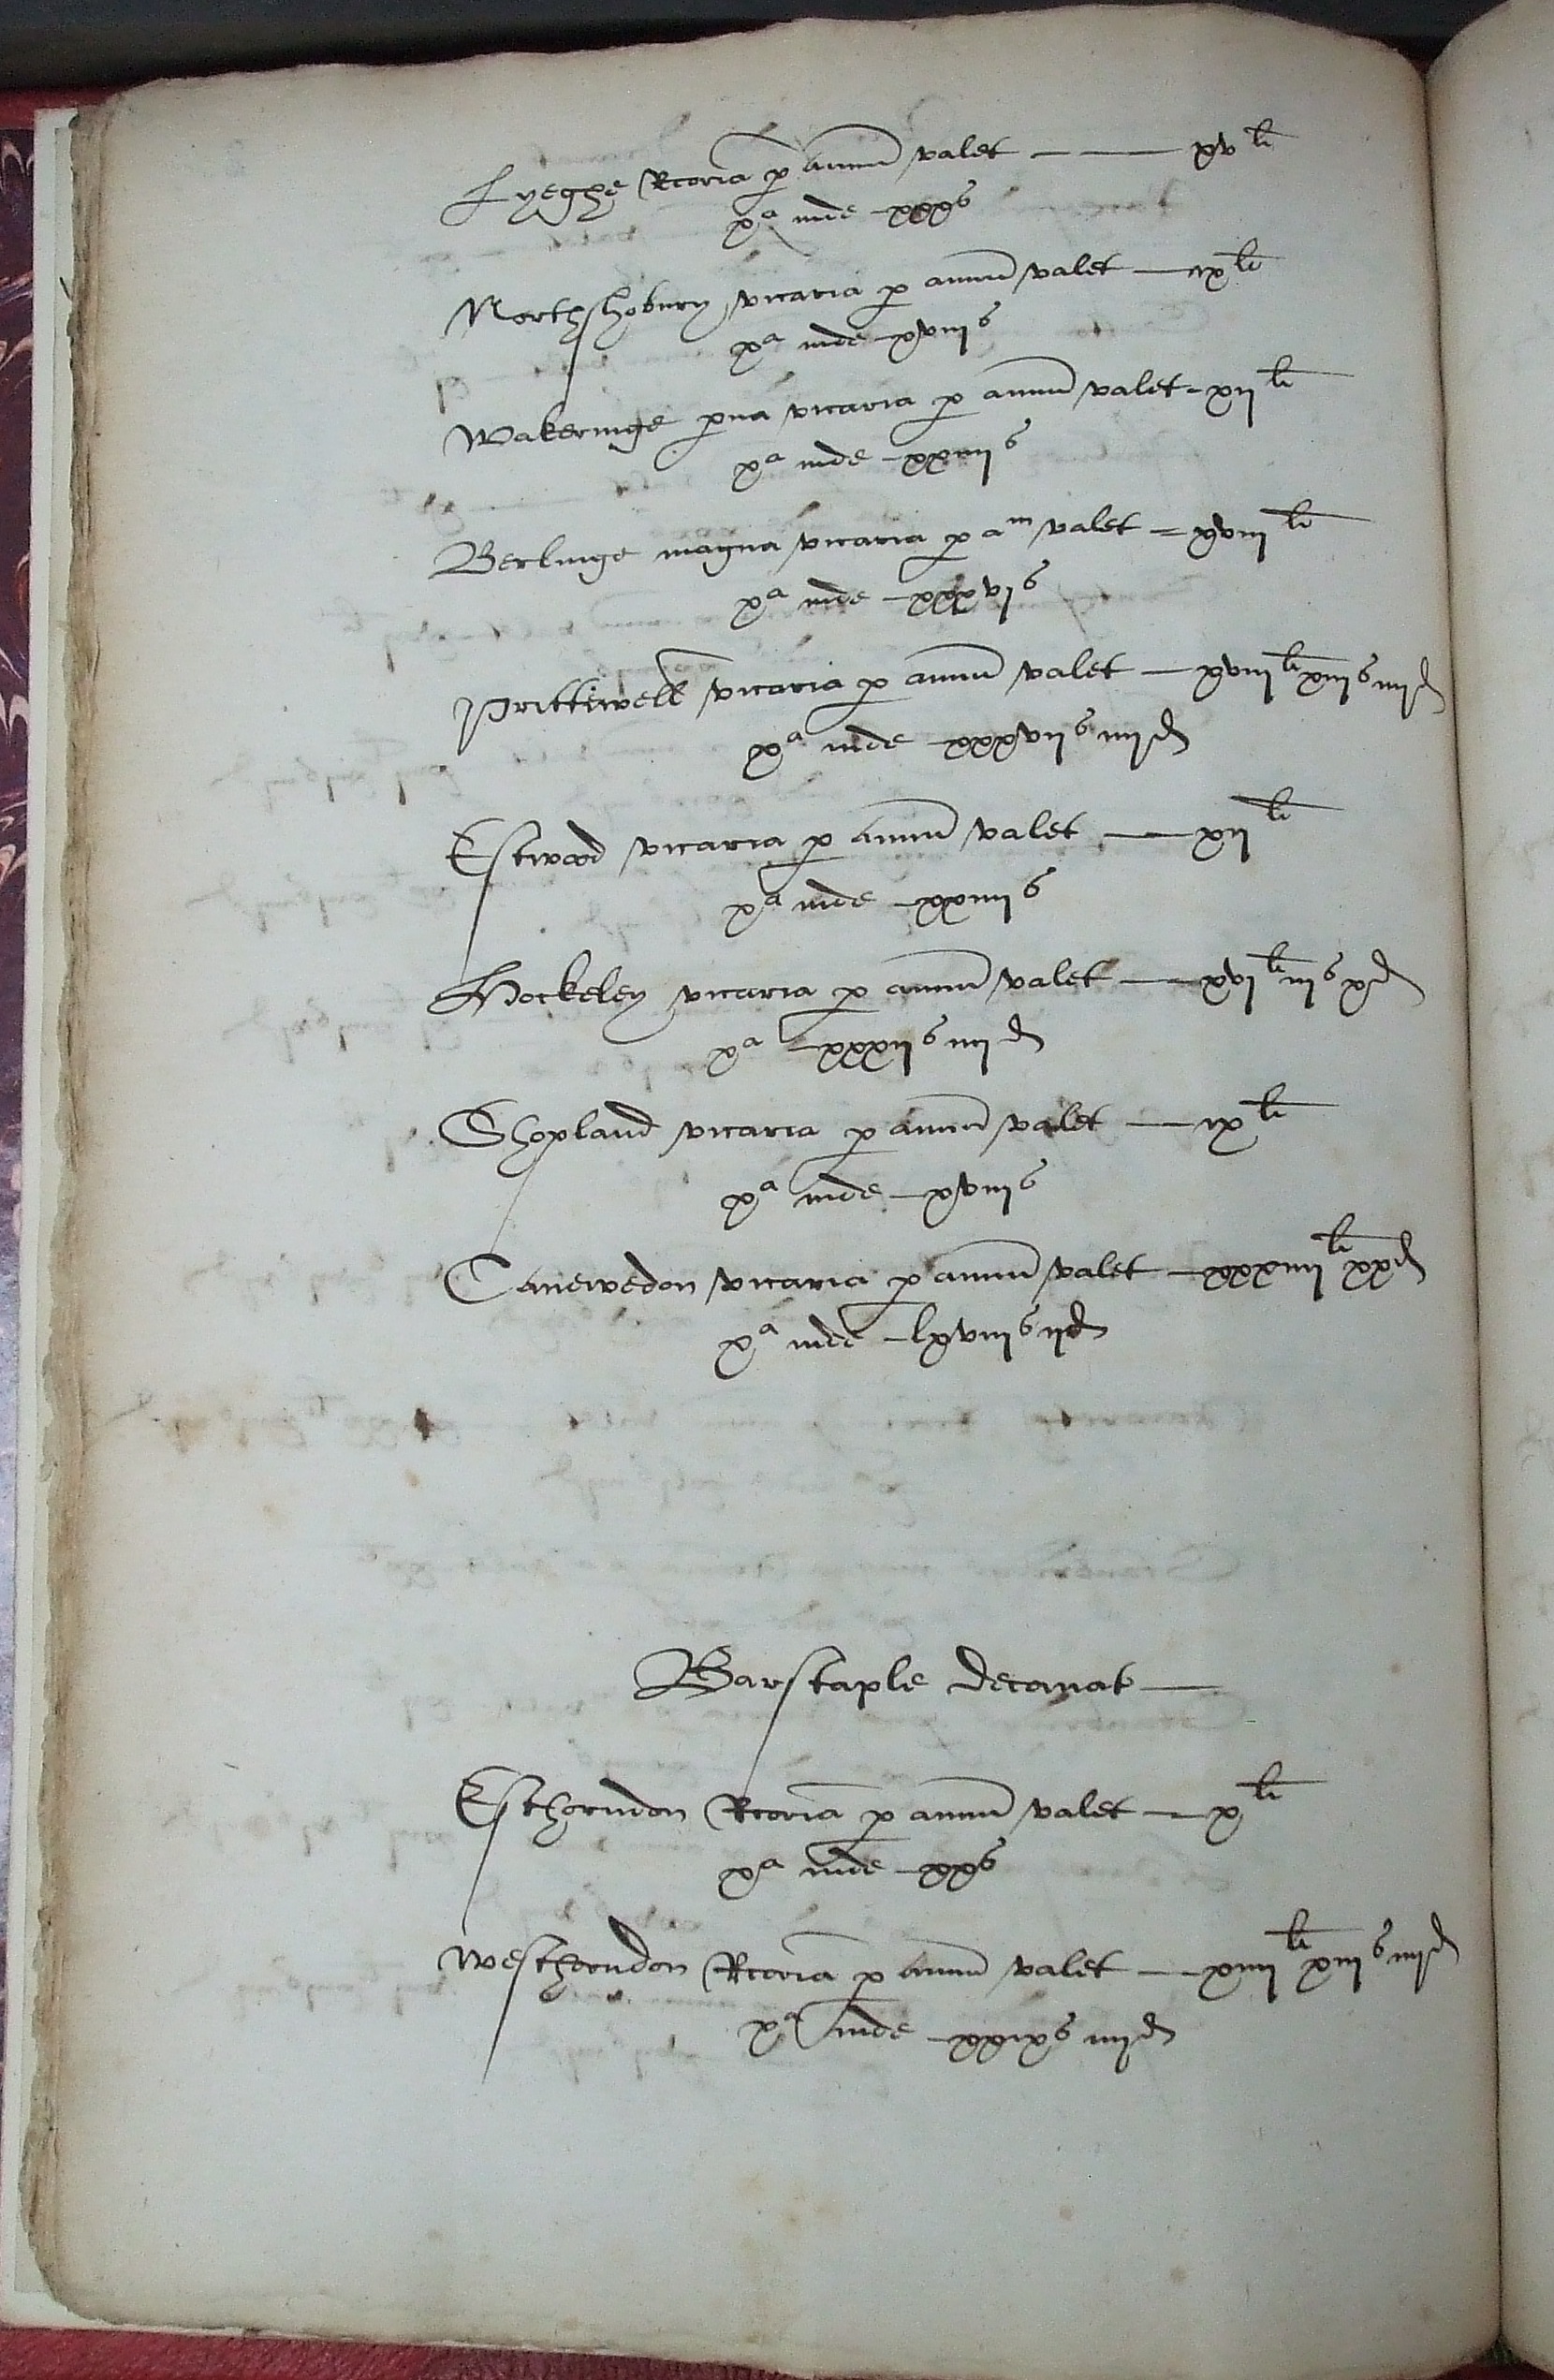 Lyeghe Rcoria p annu valet — xv li
xa inde xxx s
Northshobury vicaria p annu valet — ix li
xa inde xviij s
Wakeringe pua vicaria p annu valet - xij li
xa inde xxiiij s
Berlinge magna vicaria p am valet = xviij li
xa inde xxxvj s
Prittiwell vicaria p annu valet — xviij li xiij s iiij d
xa inde xxxvij s iiij d
Estwod vicaria p annu valet — xij li
xa inde xxiiij s
Hockeley vicaria p annu valet — xvj li iij s x d
xa xxxij s iiij d
Shopland vicaria p annu valet — ix li
xa inde xviij s
Canewedon vicaria p annu valet — xxxiiij li xx d
xa inde lxviij s ij d
Barstaple decanat —
Esthorndon Rcoria p annu valet — x li
xa inde xx s
Westhorndon Rcoria p annu valet — xiiij li xiij s iiij d
xa inde xxix s iiij d